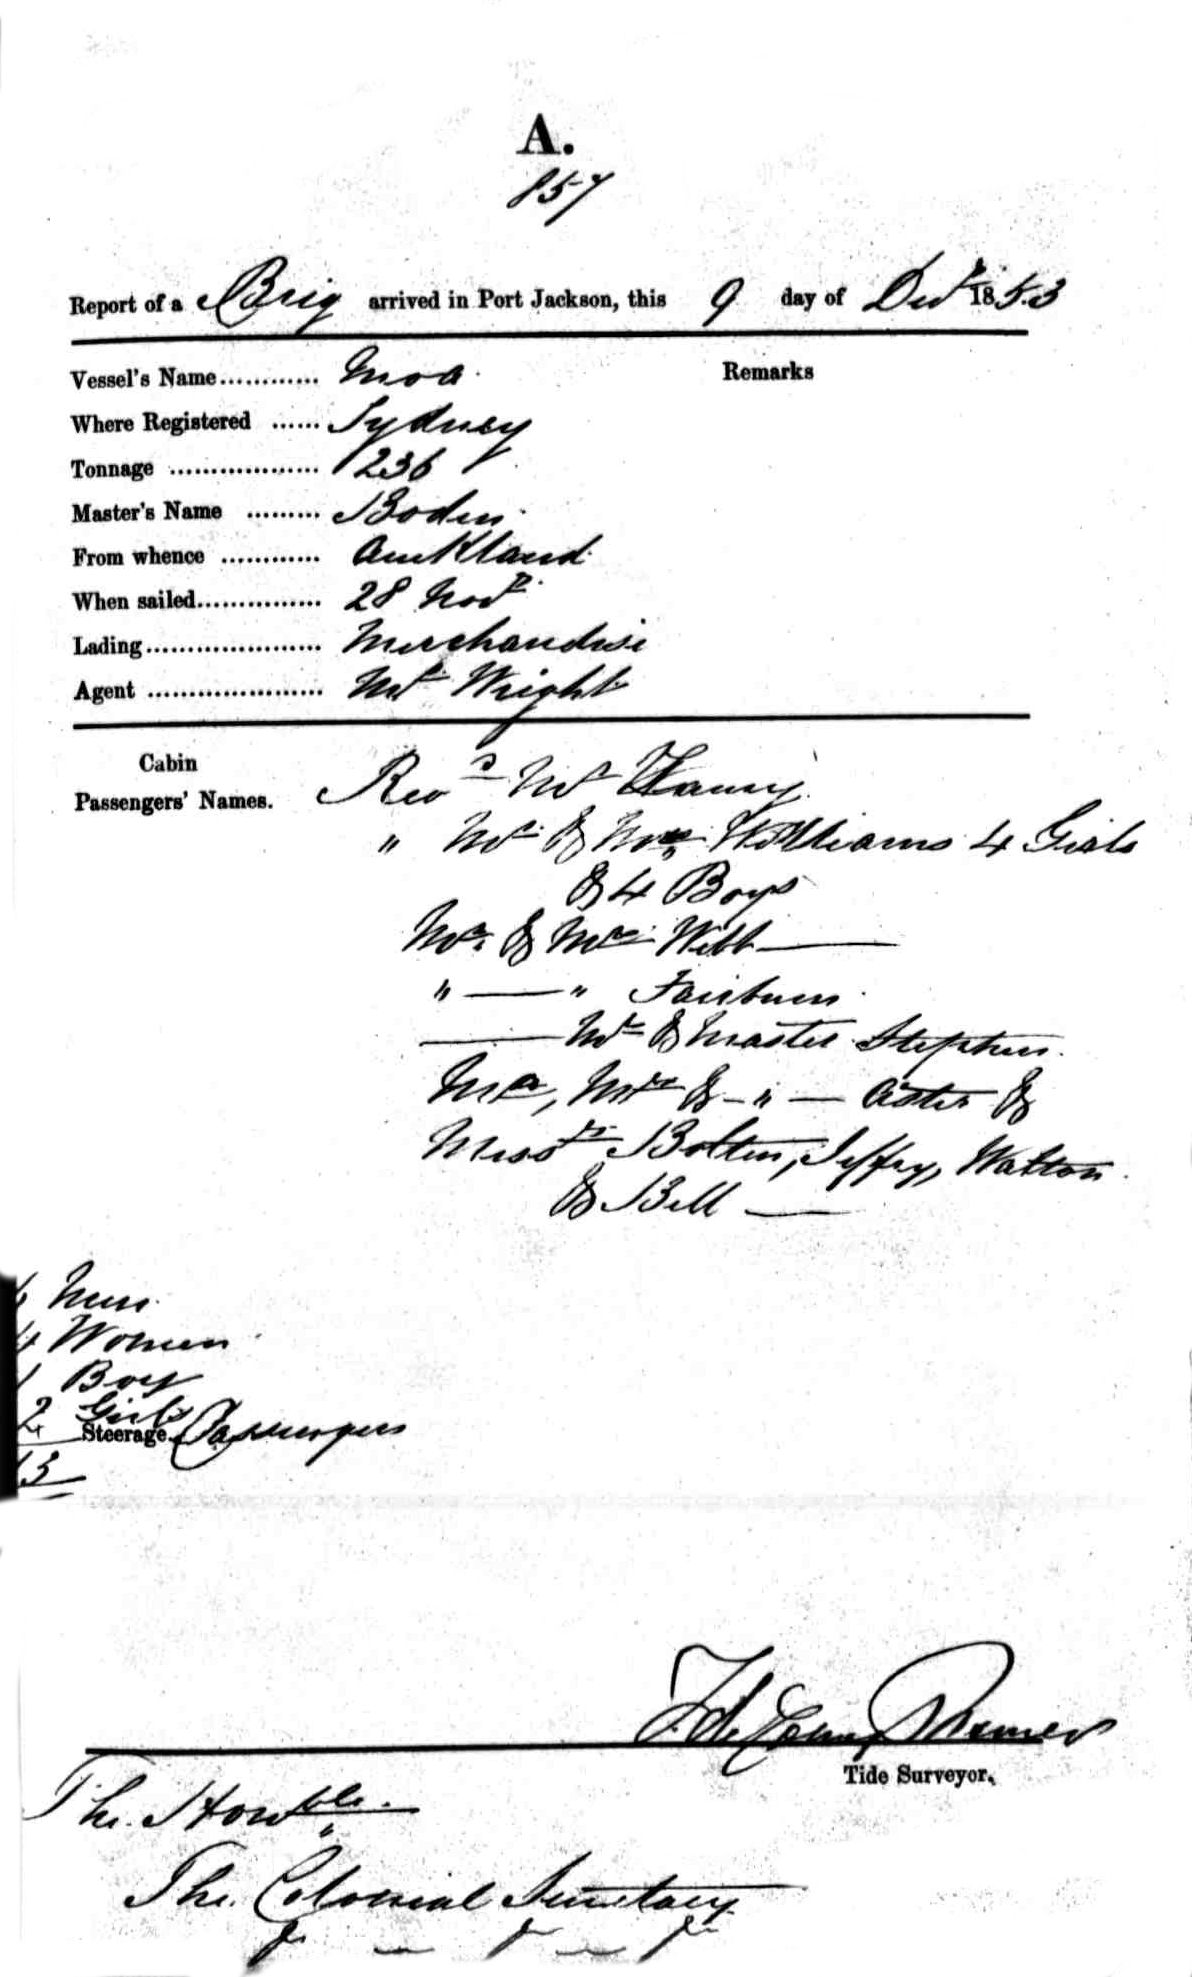 A.
857
Report of a Brig arrived in Port Jackson, this 9 day of Decr 1853
Vessel's Name............ Moa Remarks
Where Registered ...... Sydney
Tonnage .................. 236
Master's Name ......... Boden
From whence ............ Auckland
When sailed............... 28 Novr
Lading..................... Merchandise
Agent ..................... Mr Wright
Cabin
Passengers' Names.
Revd Mr
" Mr & Mrs Williams 4 Girls
& 4 Boys
Mr. & Mrs Webb —
" — " Fairburn
— Mr & Master Stephen
Mr, Mrs & - " —
Messrs Bolten, Jeffry, Watton
& Bell —
6 Men
4 Women
1 Boy
2 Girls
Steerage Passengers
13
Tide Surveyor.
The Honble.
The Colonial Secretary
&c — &c — &c